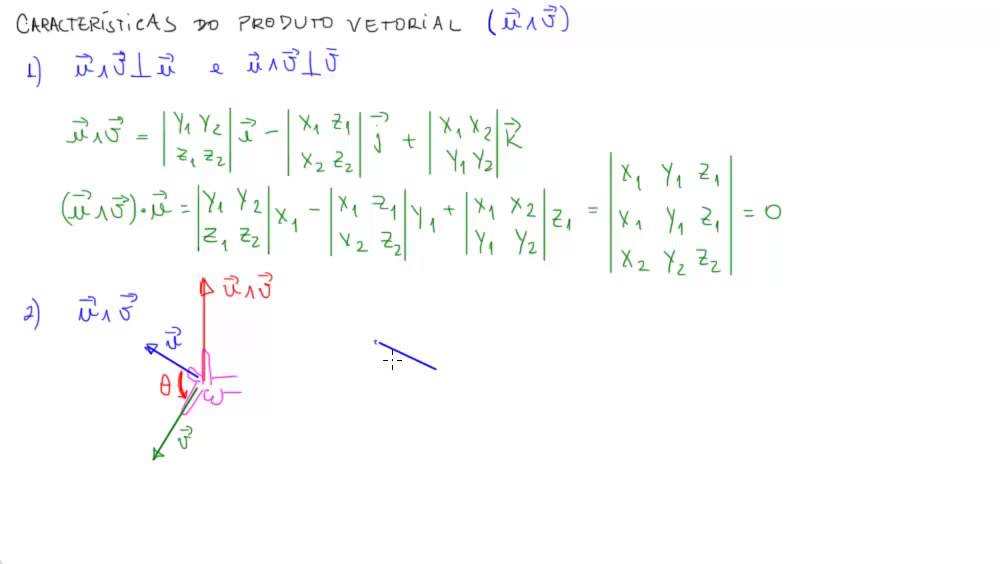 CARACTERÍSTICAS DO PRODUTO VETORIAL (u⃗ ∧ v⃗)
1) u⃗ ∧ v⃗ ⊥ u⃗ e u⃗ ∧ v⃗ ⊥ v⃗
u⃗ ∧ v⃗ = |Y₁ Y₂; Z₁ Z₂| i⃗ − |X₁ Z₁; X₂ Z₂| j⃗ + |X₁ X₂; Y₁ Y₂| k⃗
(u⃗ ∧ v⃗) · u⃗ = |Y₁ Y₂; Z₁ Z₂| X₁ − |X₁ Z₁; X₂ Z₂| Y₁ + |X₁ X₂; Y₁ Y₂| Z₁ = |X₁ Y₁ Z₁; X₁ Y₁ Z₁; X₂ Y₂ Z₂| = 0
2) u⃗ ∧ v⃗
u⃗ ∧ v⃗
u⃗
θ
v⃗